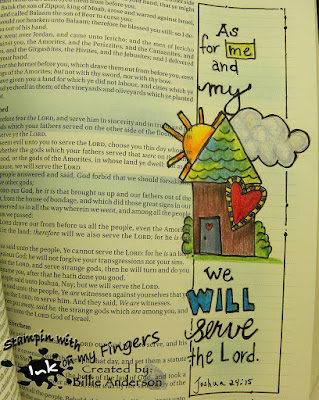 Balak the son of Zippor, king of Moab, arose and warred against Israel,
and called Balaam the son of Beor to curse you:
would not hearken unto Balaam; therefore he blessed you still: so I de-
out of his hand.
went over Jordan, and came unto Jericho: and the men of Jericho
against you, the Amorites, and the Perizzites, and the Canaanites, and
and the Girgashites, the Hivites, and the Jebusites; and I delivered
your hand.
sent the hornet before you, which drave them out from before you, even
kings of the Amorites; but not with thy sword, nor with thy bow.
have given you a land for which ye did not labour, and cities which ye
ye dwell in them; of the vineyards and oliveyards which ye planted
ord
therefore fear the LORD, and serve him in sincerity and in
gods which your fathers served on the other side of the flood
serve ye the LORD.
seem evil unto you to serve the LORD, choose you this day
whether the gods which your fathers served that were on the
flood, or the gods of the Amorites, in whose land ye dwell:
house, we will serve the LORD.
people answered and said, God forbid that we should forsake
other gods;
LORD our God, he it is that brought us up and our fathers out of the
from the house of bondage, and which did those great signs in our
preserved us in all the way wherein we went, and among all the people
we passed:
LORD drave out from before us all the people, even the Amorites
in the land: therefore will we also serve the LORD; for he is
said unto the people, Ye cannot serve the LORD: for he is an
he will not forgive your transgressions nor your sins.
the LORD, and serve strange gods, then he will turn and do you
you, after that he hath done you good.
said unto Joshua, Nay; but we will serve the LORD.
said unto the people, Ye are witnesses against yourselves that
the LORD, to serve him. And they said, We are witnesses.
put away, said he, the strange gods which are among you, and
unto the LORD God of Israel.
As
for me
and
my
we
WILL
serve
the Lord.
Joshua 24:15
Stampin with
Ink on my Fingers
Created by:
Billie Anderson